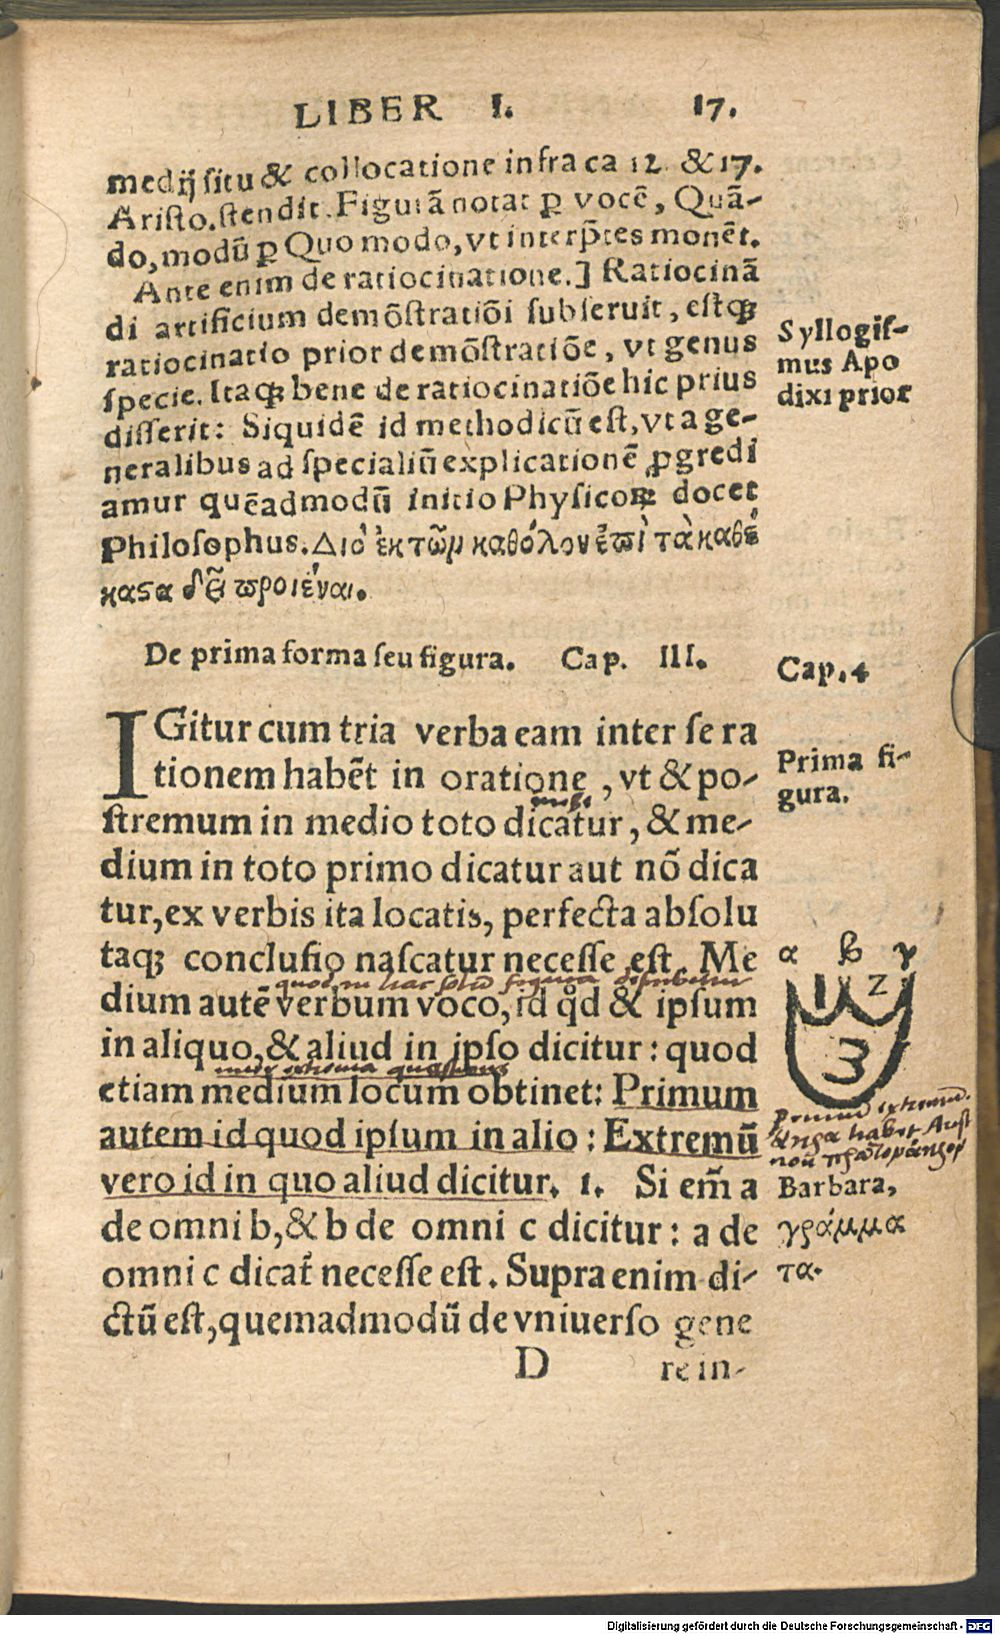 LIBER I. 17.
medij situ & collocatione infra ca 12 & 17.
Aristo.stendit. Figurā notat ꝑ vocē, Quā-
do, modū ꝑ Quo modo, vt interp̄tes monēt.
Ante enim de ratiocinatione.] Ratiocinā
di artificium demōstratiōi subseruit, estqꝫ
ratiocinatio prior demōstratiōe, vt genus
specie. Itaqꝫ bene de ratiocinatiōe hic prius
disserit: Siquidē id methodicū est, vt a ge-
neralibus ad specialiū explicationē ꝓgredi
amur quēadmodū initio Physicoꝝ docet
Philosophus. Διὸ ἐκ τῶμ καθόλου ἐπὶ τὰ καθέ
καϛα δεῖ προιέναι.
Syllogis-
mus Apo
dixi prior
De prima forma seu figura. Cap. III.
Cap. 4
IGitur cum tria verba eam inter se ra
tionem habēt in oratione, vt & po-
stremum in medio toto dicatur, & me-
dium in toto primo dicatur aut nō dica
tur, ex verbis ita locatis, perfecta absolu
taqꝫ conclusio nascatur necesse est. Me
dium autē verbum voco, id qd̄ & ipsum
in aliquo, & aliud in ipso dicitur: quod
etiam medium locum obtinet: Primum
autem id quod ipsum in alio: Extremū
vero id in quo aliud dicitur. 1. Si em̄ a
de omni b, & b de omni c dicitur: a de
omni c dicat᷑ necesse est. Supra enim di-
ctū est, quemadmodū de vniuerso gene
D rein-
Prima fi-
gura.
α β γ
1 2
3
Barbara,
γράμμα
τα.
Digitalisierung gefördert durch die Deutsche Forschungsgemeinschaft - DFG